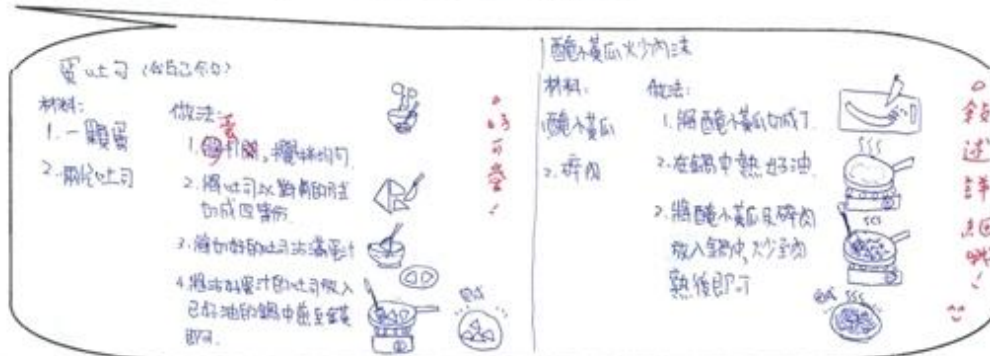 蛋吐司
材料:
1. 一顆蛋
2. 兩片吐司
做法:
蛋
1. 打開,攪拌均勻.
2. 將吐司以對角的方式
切成四等份.
3. 將切好的吐司沾滿蛋汁
4. 將沾好蛋汁的吐司放入
的鍋中煎至金黃
即可.
好可愛!
醃小黃瓜炒肉
材料:
醃小黃瓜
2. 碎肉
做法:
1. 將醃小黃瓜切成丁.
2. 在鍋中熱好油.
3. 將醃小黃瓜及碎肉
放入鍋中,炒至肉
熟後即可
敘述詳細喲!